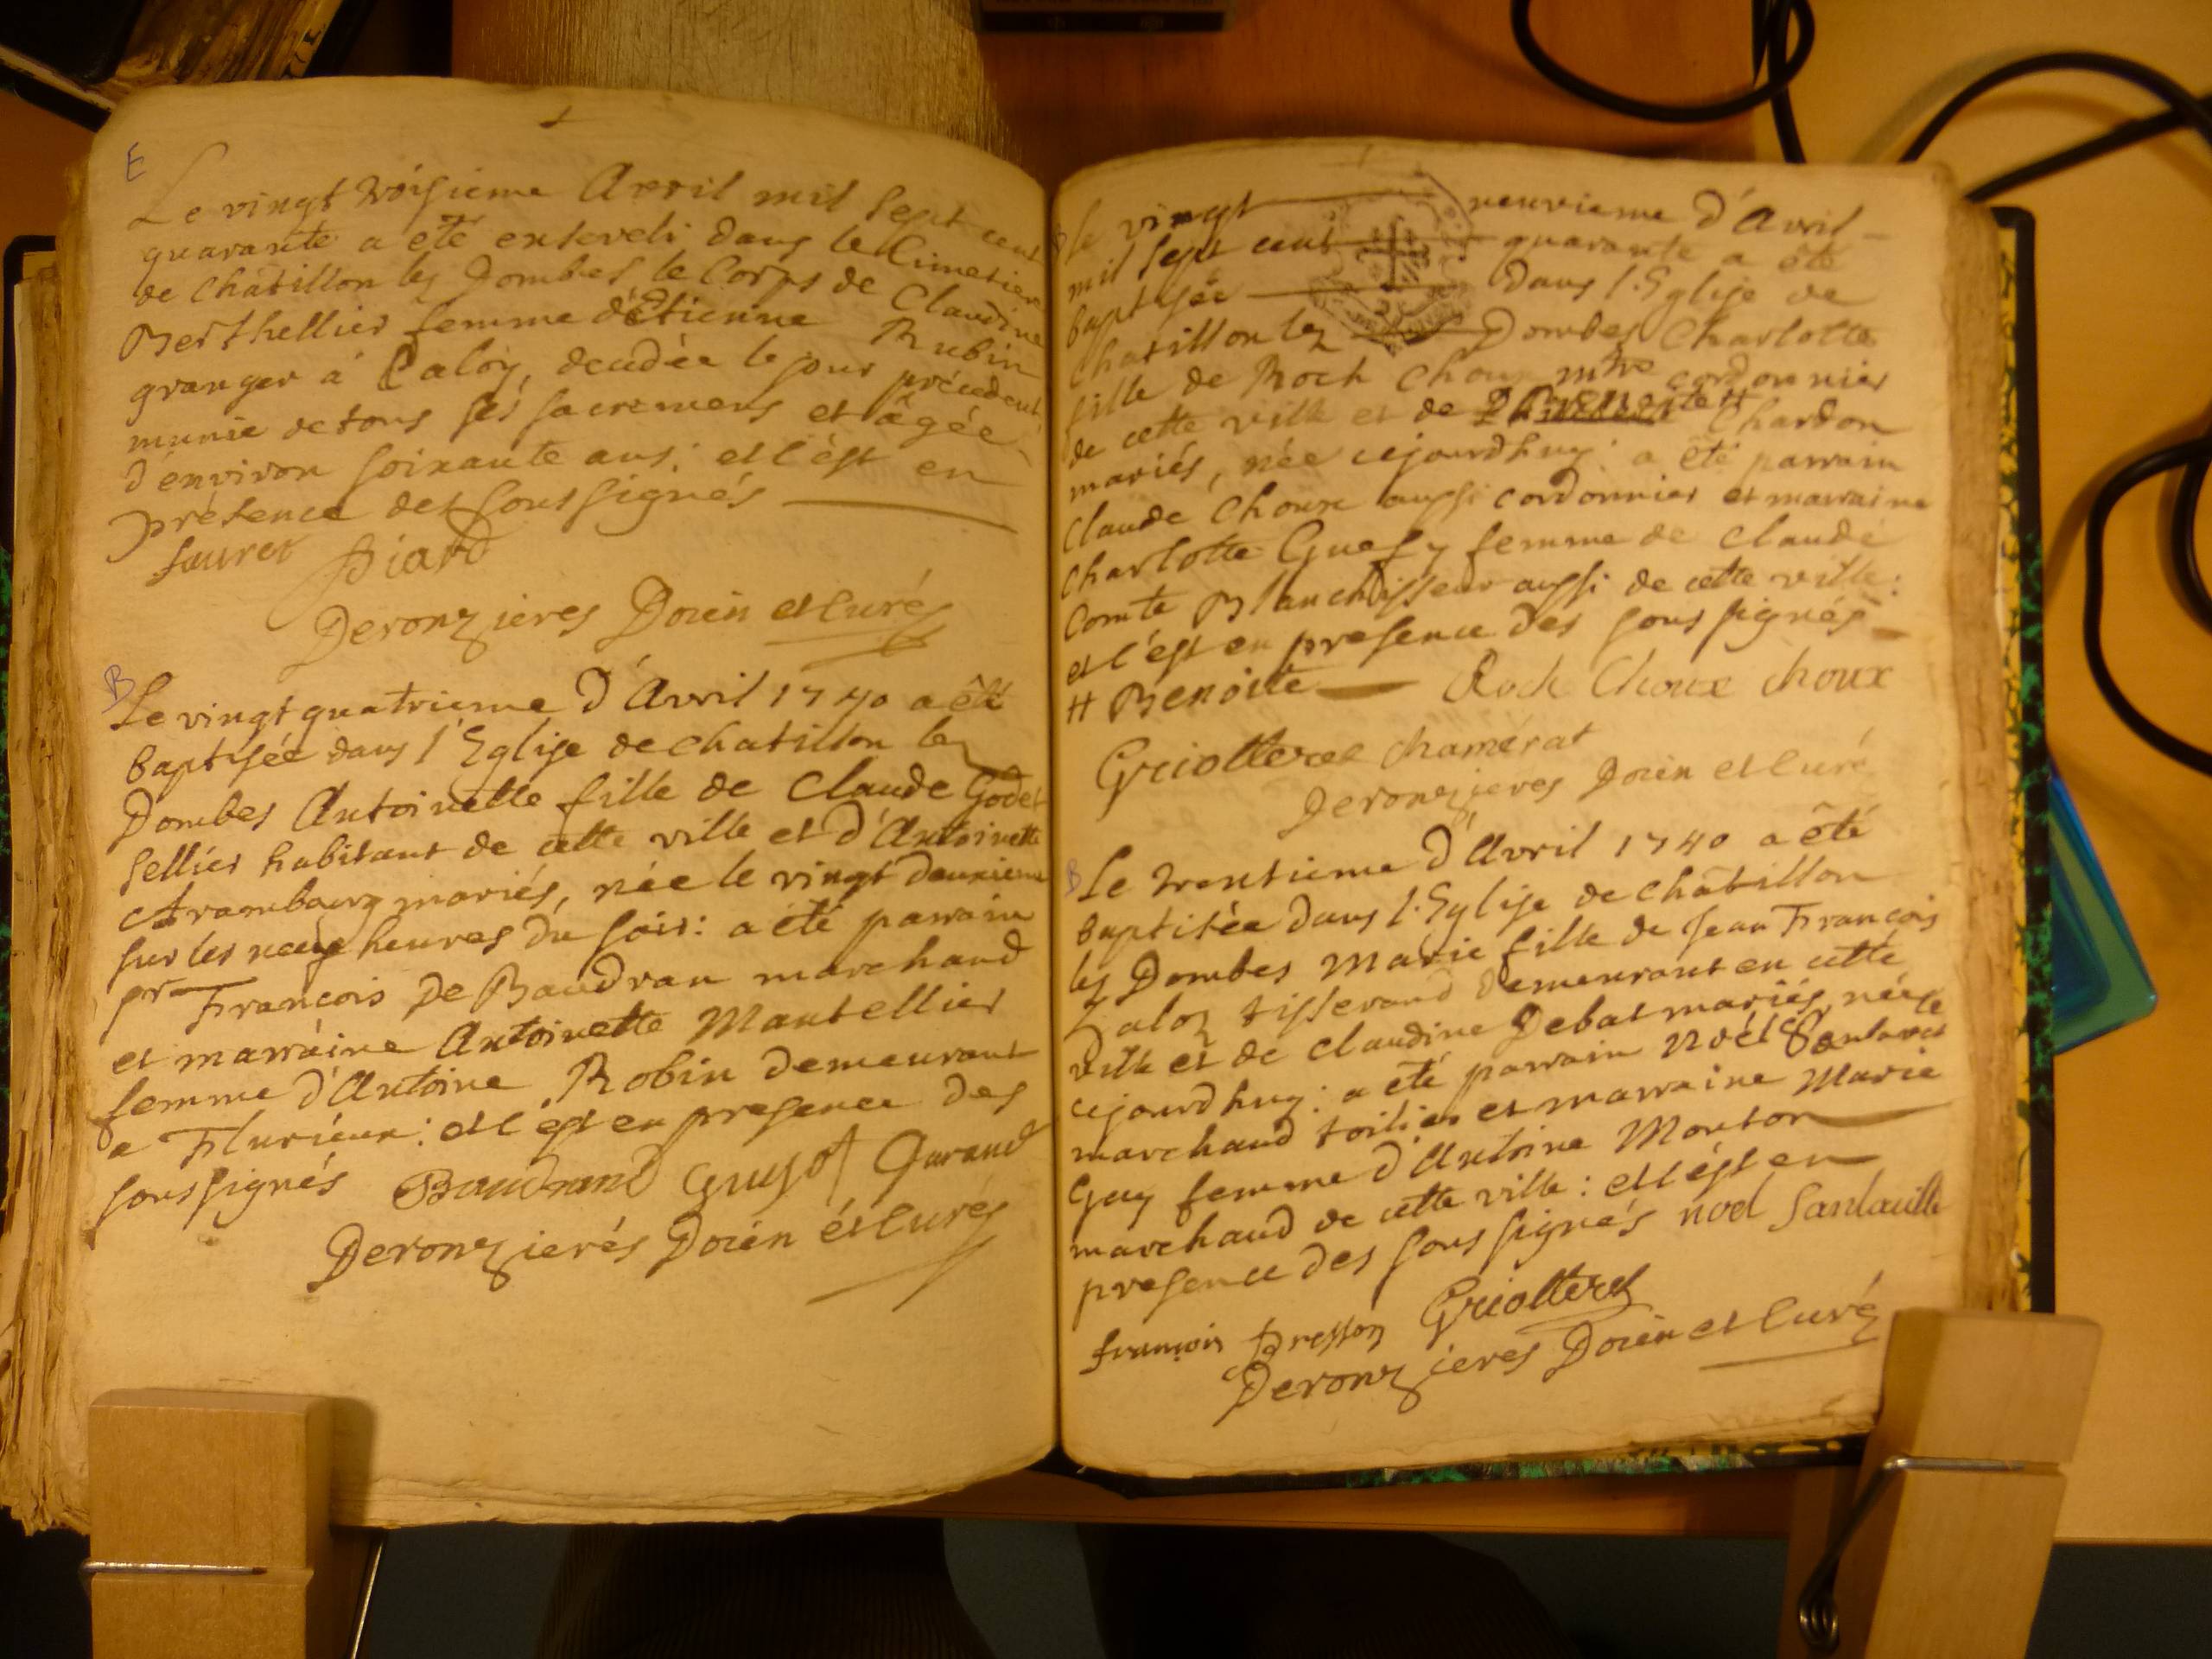 E
Le vingt troisieme Avril mil sept cent
quarante a été enseveli dans le Cimetiere
de Châtillon les Dombes le Corps de Claudine
Berthellier femme d'Etienne Rubin
granger à Caloy, decedée le jour précedent
munie de tous ses sacremens et âgée
d'environ soixante ans: et l'ést en
présence des soussignés
fauret Piard
Deronzieres Doien et curé
B
Le vingt quatrieme d'Avril 1740 a été
baptisée dans l'Eglise de chatillon lez
Dombes Antoinette fille de Claude Godet
sellier habitant de cette ville et d'Antoinette
Arambourg mariés, née le vingt deuxieme
sur les neuf heures du soir: a été parrain
pr François De Baudran marchand
et marraine Antoinette Mantellier
femme d'Antoine Robin demeurant
a Flurieux: et l'ést en presence des
soussignés Baudrand Guyot Garaud
Deronzierés Doién ét curé
B
Le vingt neuvieme d'Avril
mil sept cent quarante a été
baptisée dans l'Eglise de
Chatillon lez Dombes Charlotte
fille de Roch Choux mtre cordonnier
de cette ville et de H Chardon
mariés, née cejourdhuy: a été parrain
Claude Choux aussi cordonnier et marraine
Charlotte Guesy femme de Claude
Comte Blanchisseur aussi de cette ville:
et l'ést en presence des soussignés
H Benoite Roch Choux choux
Griotteret chamérat
Deronzieres Doien et curé
B
Le trentieme d'Avril 1740 a été
baptisée dans l'Eglise de châtillon
lez Dombes Marie fille de Jean François
tisserand demeurant en cette
ville et de Claudine Debat mariés, née le
cejourdhuy: a été parrain Noël
marchand toilier et marraine Marie
Guy femme d'Antoine Monton
marchand de cette ville: et l'ést en
presence des soussignés noel
françois Griotteret
Deronzieres Doien et curé